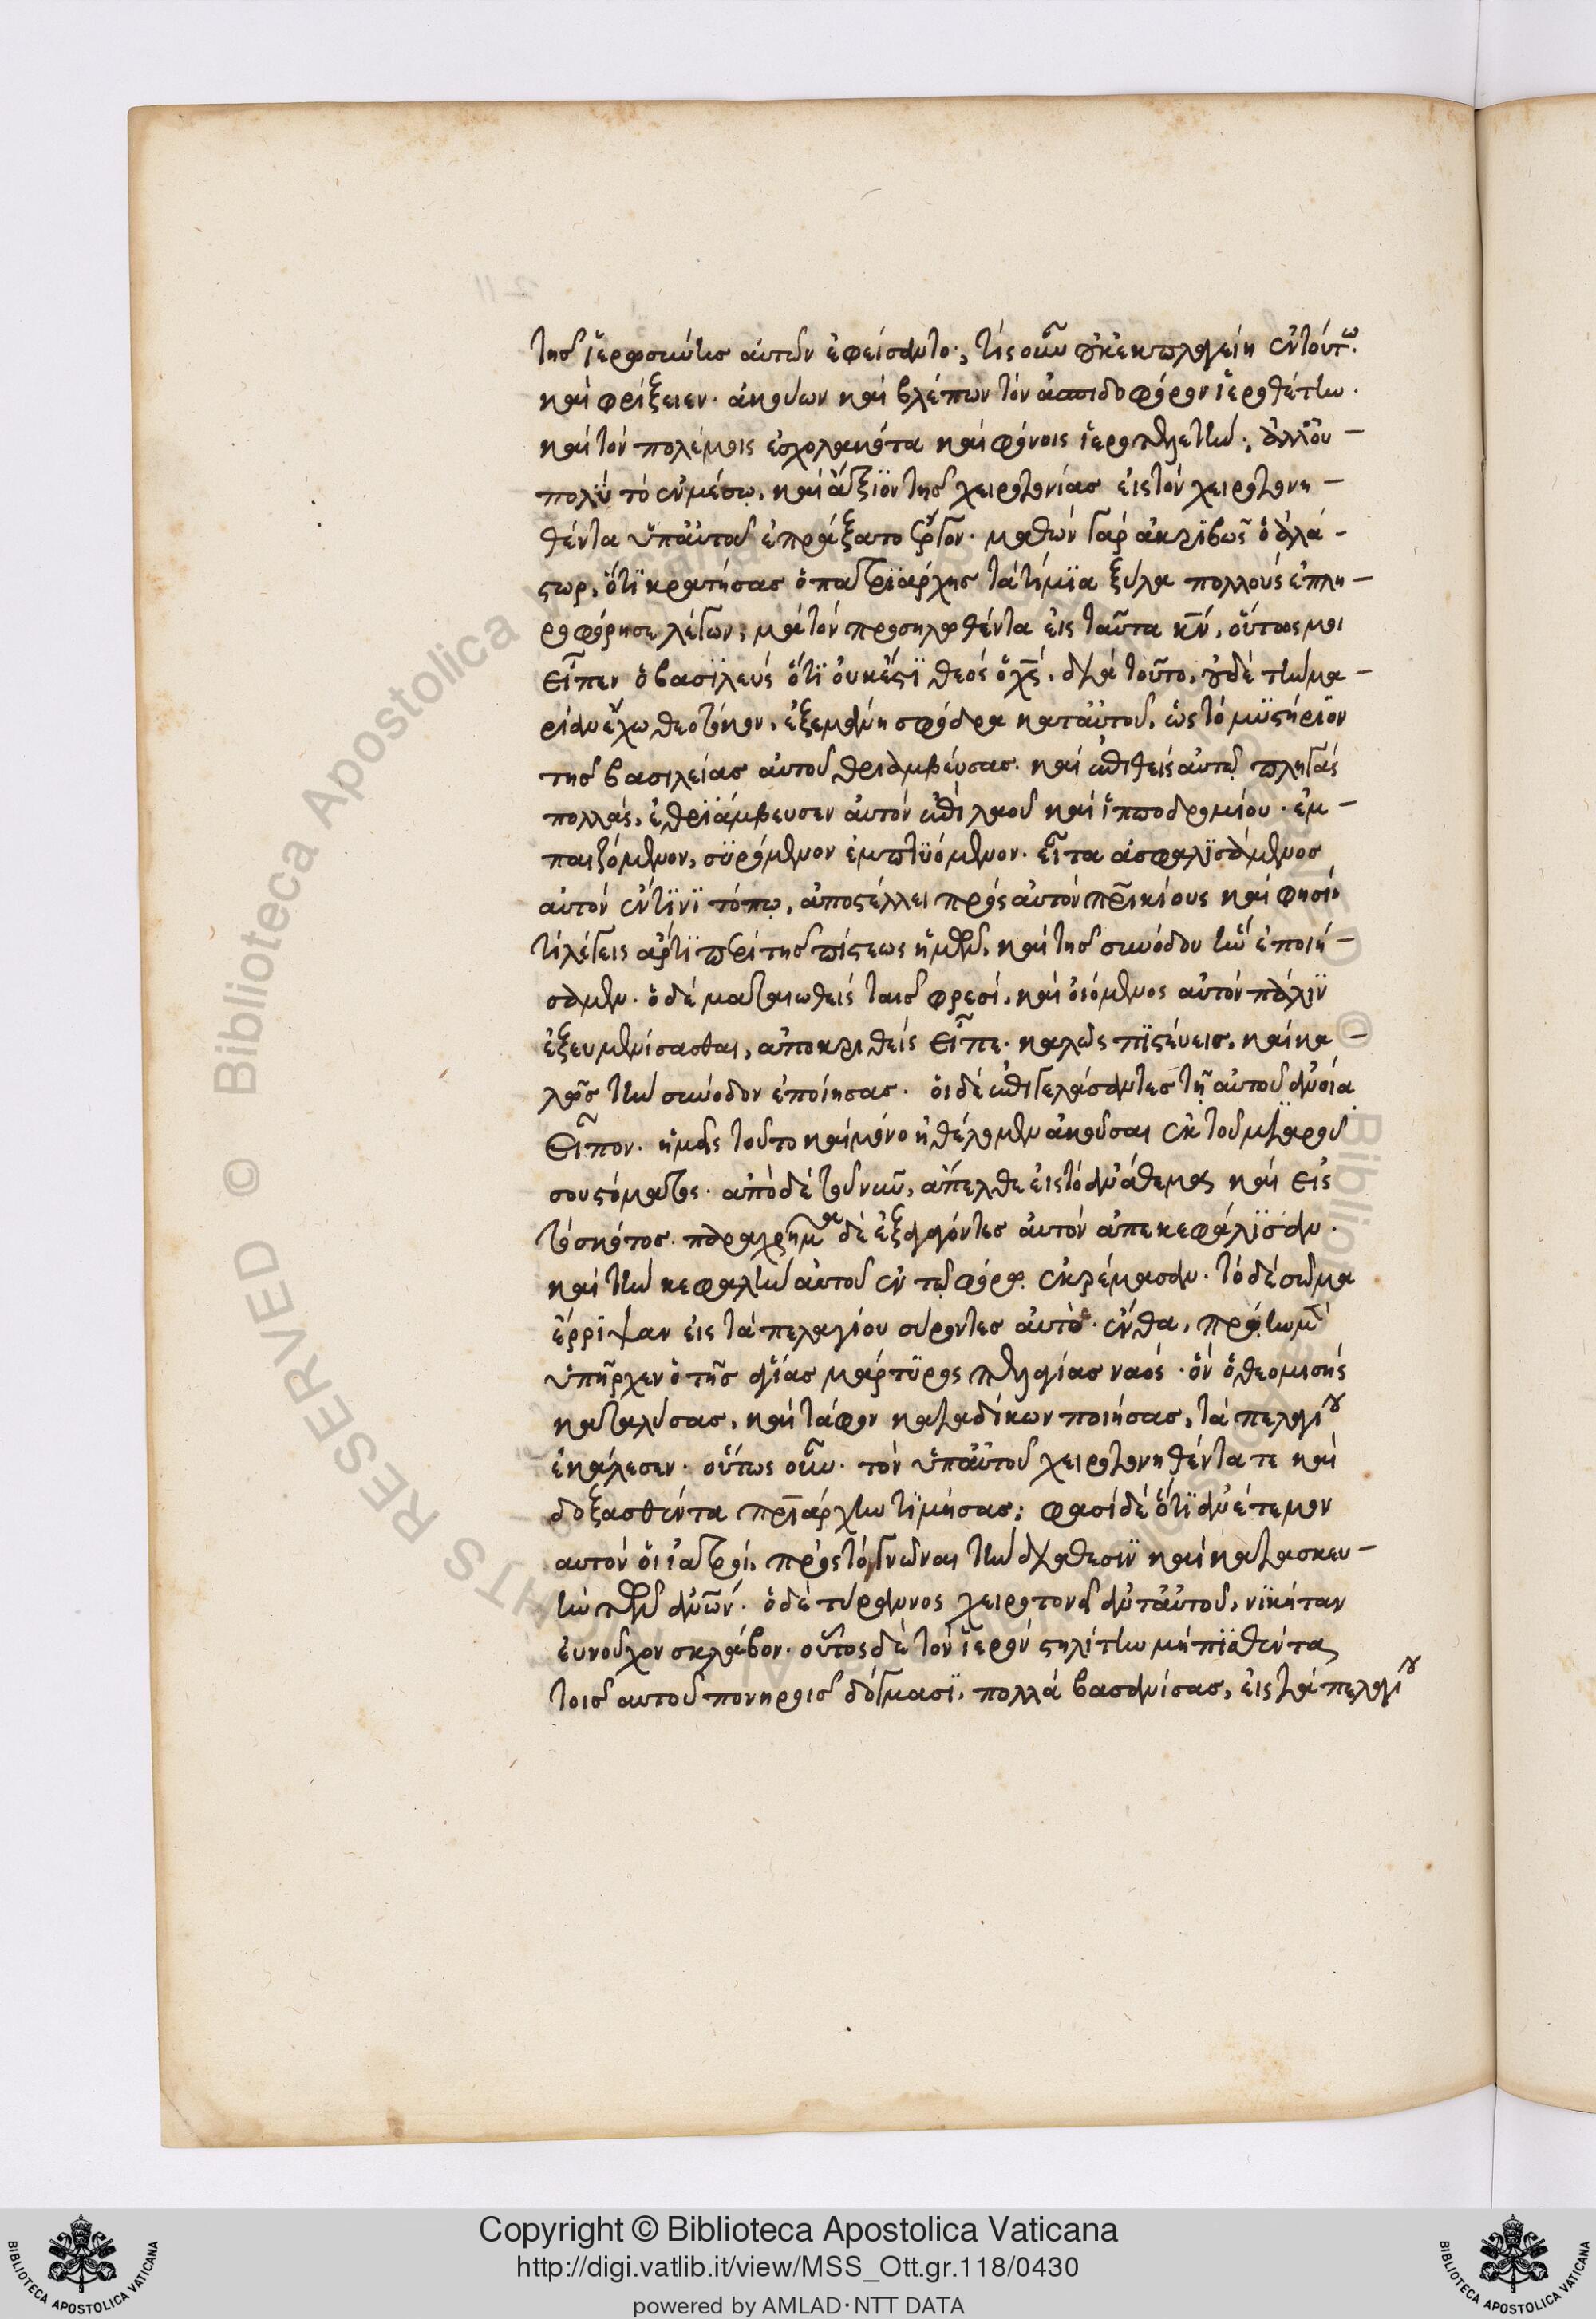 τῆς ἱερωσύνης αὐτῶν ἐφείσαντο· τίς οὖν οὐκ ἐκπλαγείη ἐν τούτω.
καὶ φρίξειεν· ἀκούων καὶ βλέπων τὸν ἀσπιδοφόρον ἱεροθέτην.
καὶ τὸν πολέμοις ἐσχολακότα καὶ φόνοις
πολὺ τὸ ἐν μέσῳ. καὶ ἄξιον τῆς χειροτονίας εἰς τὸν χειροτονη-
θέντα ὑπ' αὐτοῦ ἐπράξατο ἔργον· μαθὼν γὰρ ἀκριβῶς ὁ ἀλά-
στωρ, ὅτι κρατήσας ὁ πατριάρχης τὰ τίμια ξύλα πολλοὺς ἐπλη-
ροφόρησε λέγων, μὰ τὸν προσηλωθέντα εἰς ταῦτα κν̅, οὕτως μοι
εἶπεν ὁ βασιλεὺς ὅτι οὐκ ἔστι θεὸς ὁ χς̅, διὰ τοῦτο, οὐδὲ τὴν μα-
ρίαν ἔχω θεοτόκον, ἐξεμάνη σφόδρα κατ' αὐτοῦ, ὡς τὸ μυστήριον
τῆς βασιλείας αὐτοῦ θριαμβεύσας· καὶ ἐπιθεὶς αὐτῷ πληγὰς
πολλάς, ἐθριάμβευσεν αὐτὸν ἐπὶ λαοῦ καὶ ἱπποδρομίου· ἐμ-
παιζόμενον, συρόμενον ἐμπτυόμενον· εἶτα ἀσφαλισάμενος
αὐτὸν ἔν τινι τόπῳ, ἀποστέλλει πρὸς αὐτὸν πρικίους καὶ φησὶ·
τί λέγεις ἄρτι περὶ τῆς πίστεως ἡμῶν, καὶ τῆς συνόδου ἣν ἐποιή-
σαμεν· ὁ δὲ ματαιωθεὶς ταῖς φρεσί, καὶ οἰόμενος αὐτὸν πάλιν
ἐξευμενίσασθαι, ἀποκριθεὶς εἶπε· καλῶς πιστεύεις, καὶ κα-
λῶς τὴν σύνοδον ἐποίησας· οἱ δὲ ἐπιγελάσαντες τῇ αὐτοῦ ἀνοία
εἶπον· ἡμεῖς τοῦτο καὶ μόνο ἠθέλομεν ἀκοῦσαι ἐκ τοῦ μιαροῦ
σου στόματος· ἀπὸ δὲ τοῦ νῦν, ἄπελθε εἰς τὸ ἀνάθεμα καὶ εἰς
τὸ σκότος· παραχρῆμα δὲ ἐξαγαγόντες αὐτὸν ἀπεκεφάλισαν·
καὶ τὴν κεφαλὴν αὐτοῦ ἐν τῷ φόρῳ ἐκρέμασαν· τὸ δὲ σῶμα
ἔρριψαν εἰς τὰ πελαγίου σύροντες αὐτὸ· ἔνθα, πρώην μὲν
ὑπῆρχεν ὁ τῆς ἁγίας μάρτυρος πελαγίας ναός· ὃν ὁ θεομισὴς
καταλύσας, καὶ τάφον καταδίκων ποιήσας, τὰ πελαγίου
ἐκάλεσεν· οὕτως οὖν· τὸν ὑπ' αὐτοῦ χειροτονηθέντα τε καὶ
δοξασθέντα πριάρχην τιμήσας· φασὶ δὲ ὅτι ἀνέτεμον
αὐτὸν οἱ ἰατροί, πρὸς τὸ γνῶναι τὴν διάθεσιν καὶ κατασκευ-
ὴν τῶν ἀνων· ὁ δὲ τύραννος χειροτονεῖ ἀντ' αὐτοῦ, νικήταν
εὐνοῦχον σκλάβον· οὗτος δὲ τὸν ἱερὸν στηλίτην μὴ πιαθέντα
τοῖς αὐτοῦ πονηροῖς δόγμασι, πολλὰ βασανίσας, εἰς τὰ πελαγίου